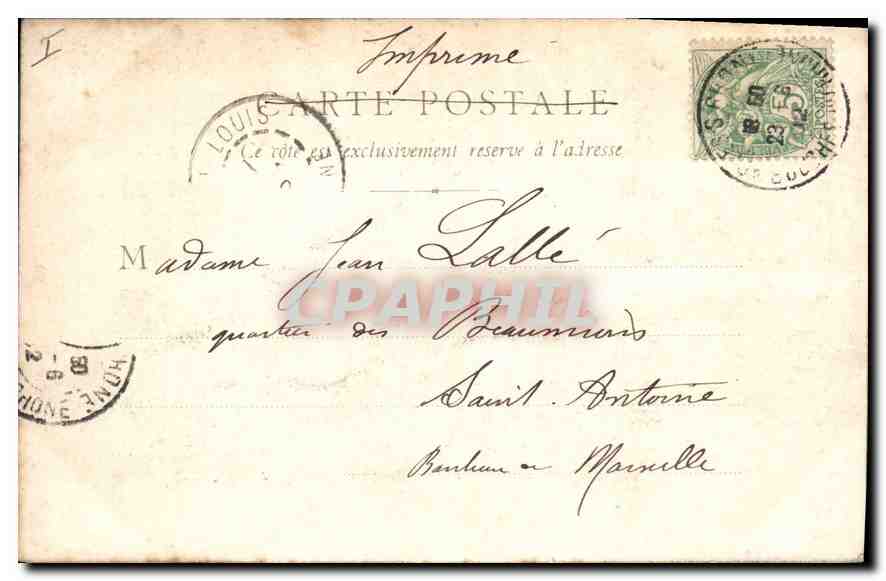 I
Imprimé
CARTE POSTALE
Ce côté est exclusivement réservé à l'adresse
LOUIS
Madame Jean Lallé
CPAPHIL
quartier des Beaumuris
Saint. Antoine
Banlieue de Marseille
RHONE